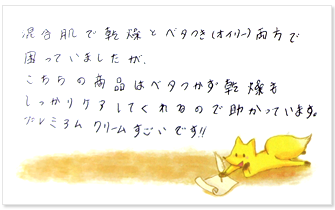 混合肌で乾燥とベタつき(オイリー)両方で
困っていましたが、
こちらの商品はベタつかず乾燥も
しっかりケアしてくれるので助かっています。
プレミアム クリームすごいです!!